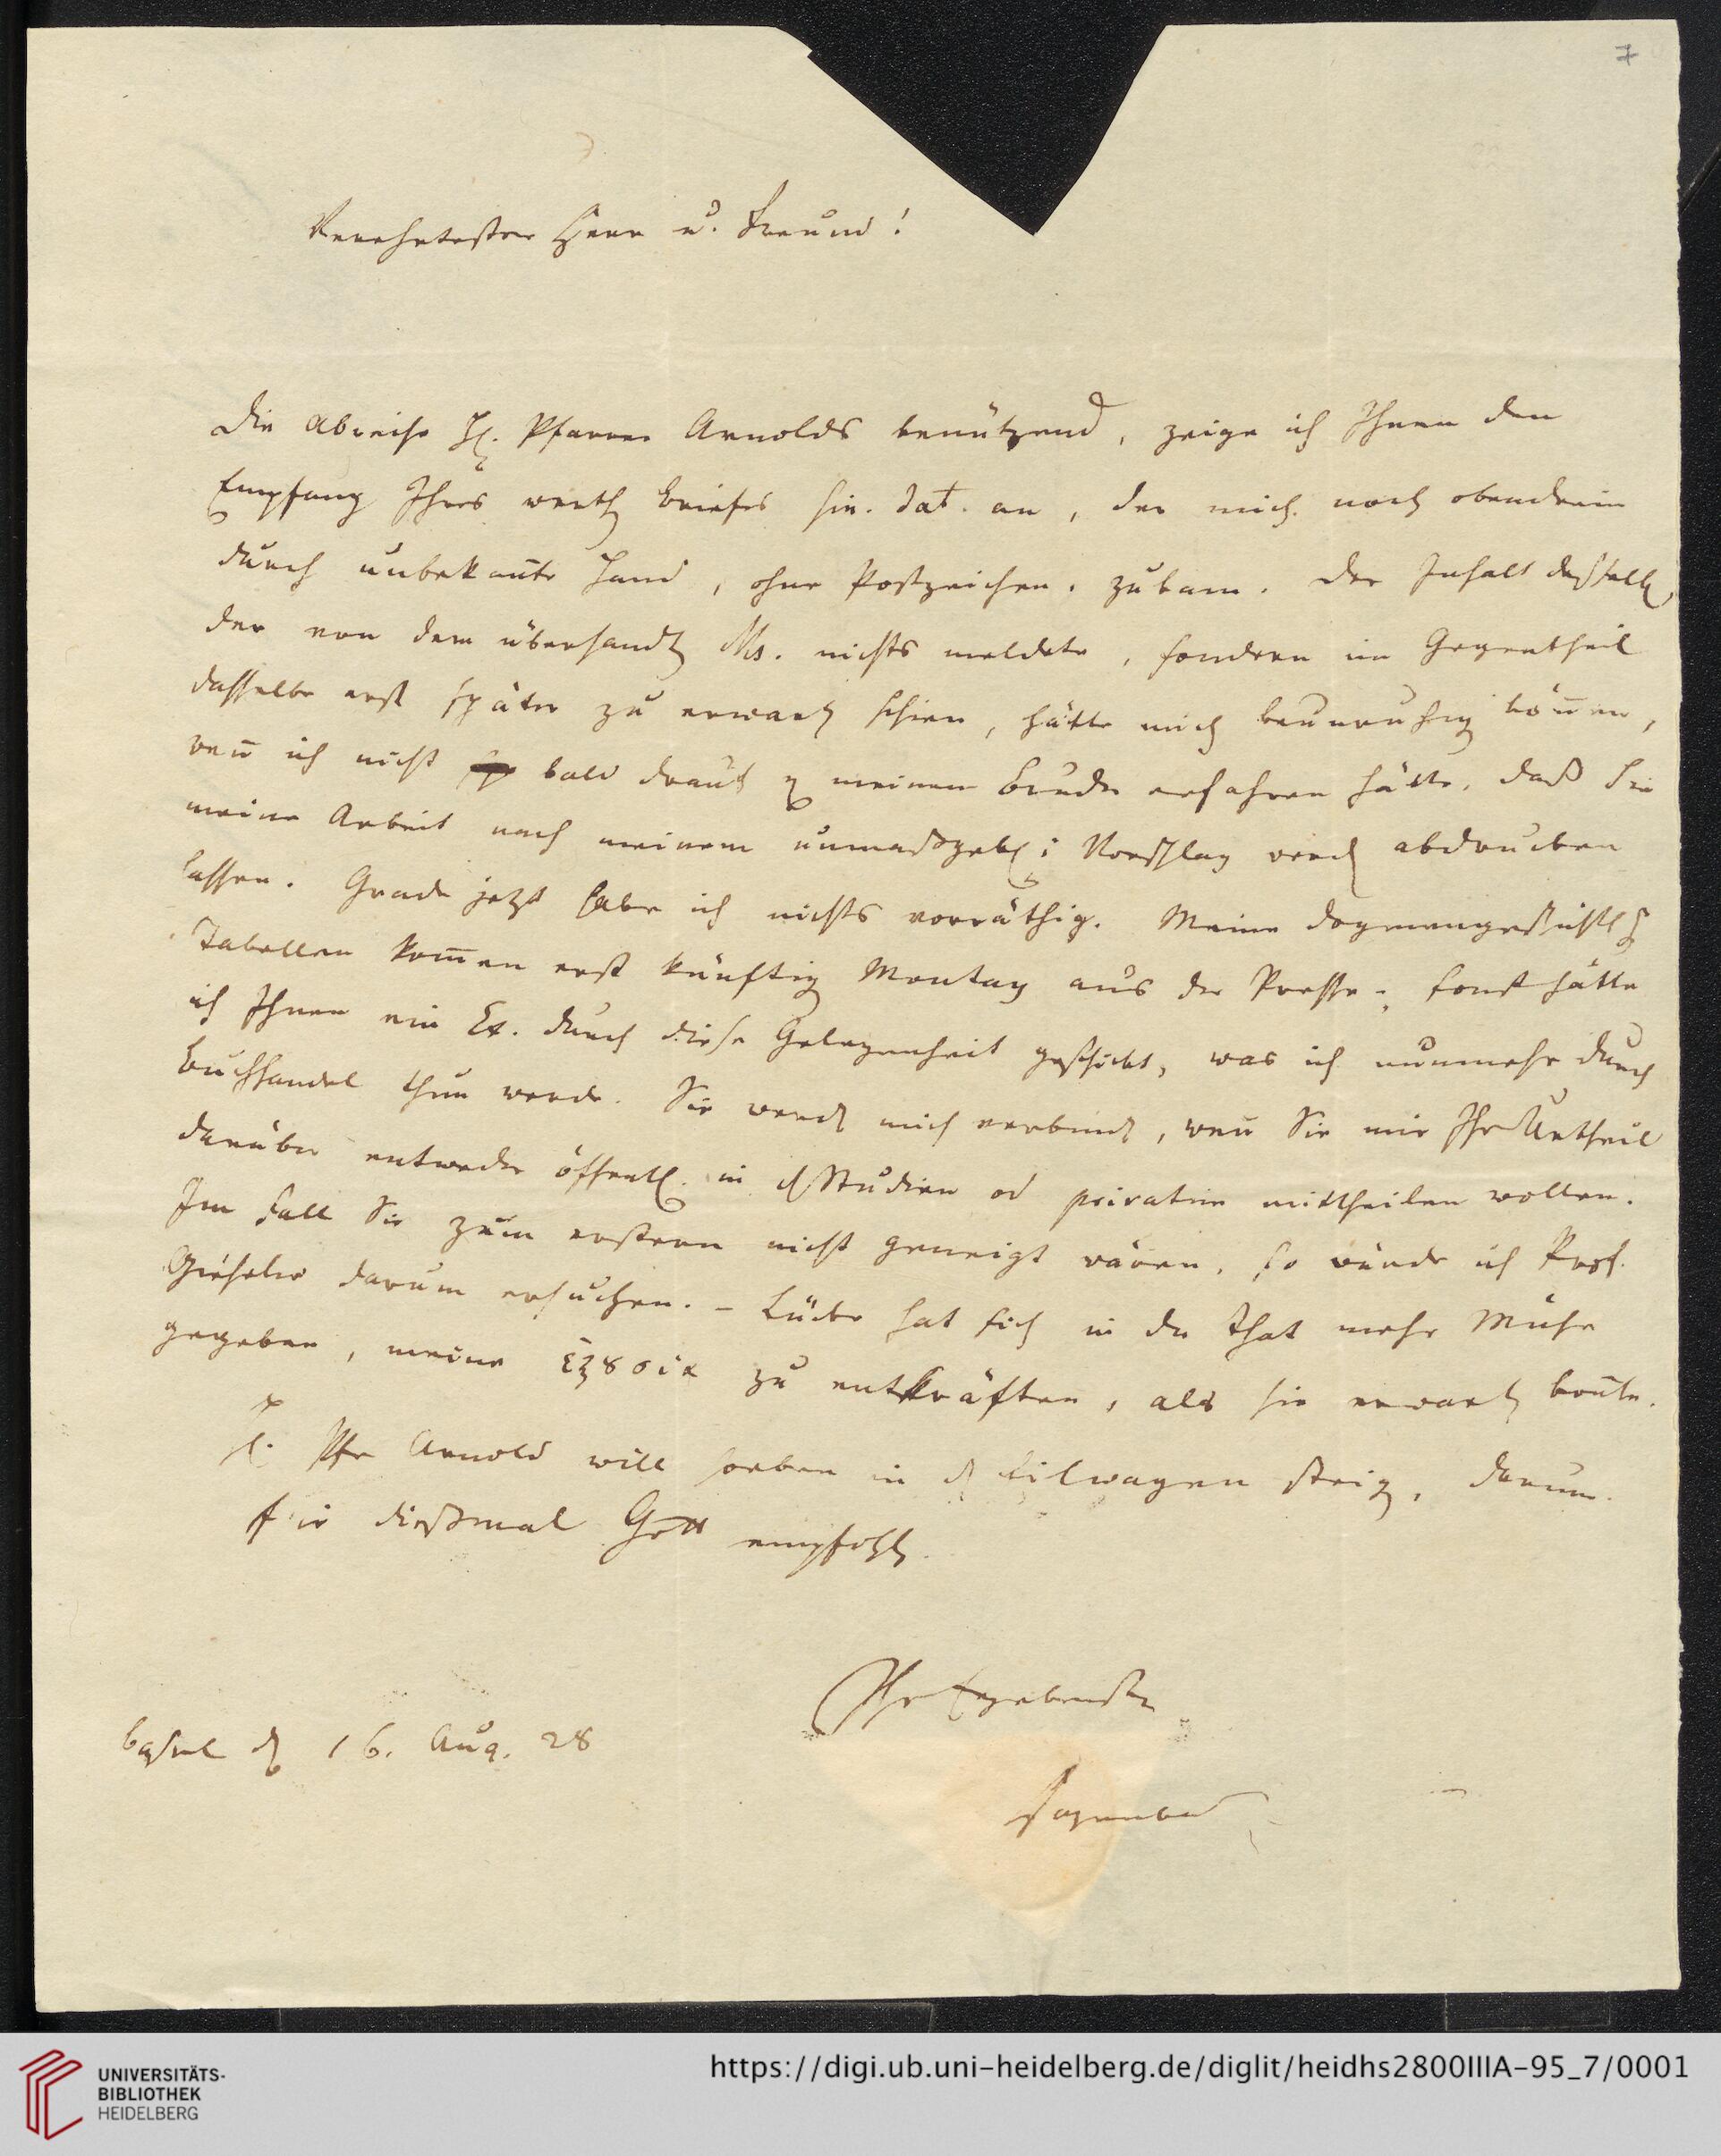 7
Verehrtester Herr u. Freund!
Die Abreise H. Pfarrer Arnolds benützend, zeige ich Ihnen den
Empfang Ihres werth Briefes sin. dat. an, der mich noch obendrein
durch unbekañte Hand, ohne Postzeichen, zukam. Der Inhalt desselb,
der von dem übersandt Ms. nichts meldete, sondern im Gegentheil
dasselbe erst später zu erwart schien, hätte mich beunruhig köñen,
weñ ich nicht bald drauf meinem Bruder erfahren hätte, daß Sie
meine Arbeit nach meinem unmaßgebl. Vorschlag werd abdrucken
lassen. Grade jetzt habe ich nichts vorräthig. Meine dogmengeschichtl
Tabellen kom̃en erst künftig Montag aus der Presse, sonst hätte
ich Ihnen ein Ex. durch diese Gelegenheit geschickt, was ich nunmehr durch
Buchhandel thun werde. Sie werd mich verbind, weñ Sie mir Ihr Urtheil
darüber entweder öffentl. in d Studien od privatim mittheilen wollen.
Im Fall Sie zum erstern nicht geneigt wären, so würde ich Prof.
Gieseler darum ersuchen. – Lücke hat sich in der That mehr Mühe
gegeben, meine zu entkräften, als sie erwart koñte.
Pfr Arnold will soeben in d Eilwagen steig, darum
für dießmal Gott empfohl.
Ihr Ergebenster
Basel d 16. Aug. 28
Hagenbach
UNIVERSITÄTS-
BIBLIOTHEK
HEIDELBERG
https://digi.ub.uni-heidelberg.de/diglit/heidhs2800IIIA-95_7/0001